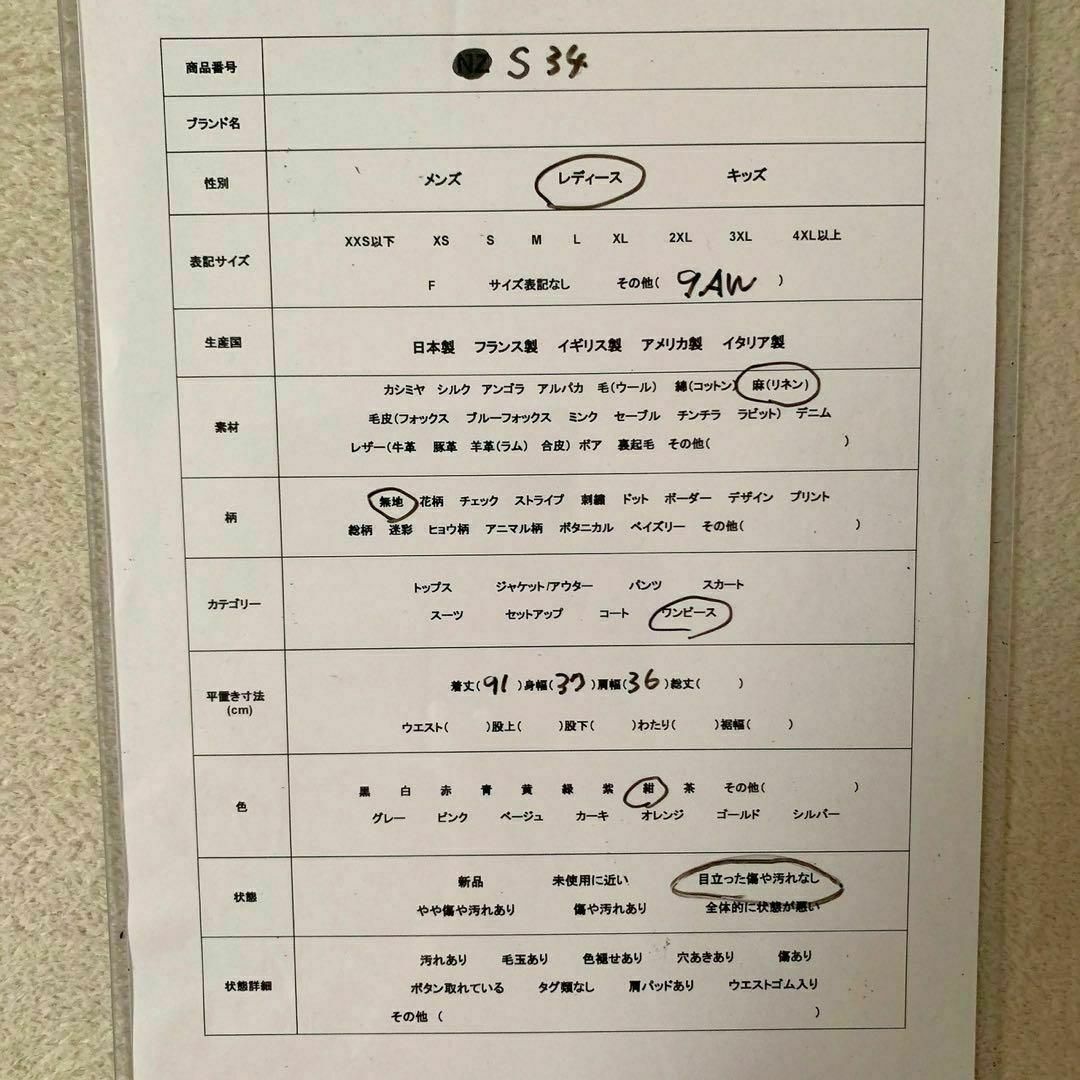 商品番号 NZ S 34
ブランド名
性別 メンズ レディース キッズ
表記サイズ
XXS以下 XS S M L XL 2XL 3XL 4XL以上
F サイズ表記なし その他( 9AW )
生産国 日本製 フランス製 イギリス製 アメリカ製 イタリア製
素材
カシミヤ シルク アンゴラ アルパカ 毛(ウール) 綿(コットン) 麻(リネン)
毛皮(フォックス ブルーフォックス ミンク セーブル チンチラ ラビット) デニム
レザー(牛革 豚革 羊革(ラム) 合皮) ボア 裏起毛 その他( )
柄
無地 花柄 チェック ストライプ 刺繍 ドット ボーダー デザイン プリント
総柄 迷彩 ヒョウ柄 アニマル柄 ボタニカル ペイズリー その他( )
カテゴリー
トップス ジャケット/アウター パンツ スカート
スーツ セットアップ コート ワンピース
平置き寸法
(cm)
着丈( 91 )身幅( 37 )肩幅( 36 )総丈( )
ウエスト( )股上( )股下( )わたり( )裾幅( )
色
黒 白 赤 青 黄 緑 紫 紺 茶 その他( )
グレー ピンク ベージュ カーキ オレンジ ゴールド シルバー
状態
新品 未使用に近い 目立った傷や汚れなし
やや傷や汚れあり 傷や汚れあり 全体的に状態が悪い
状態詳細
汚れあり 毛玉あり 色褪せあり 穴あきあり 傷あり
ボタン取れている タグ類なし 肩パッドあり ウエストゴム入り
その他 ( )